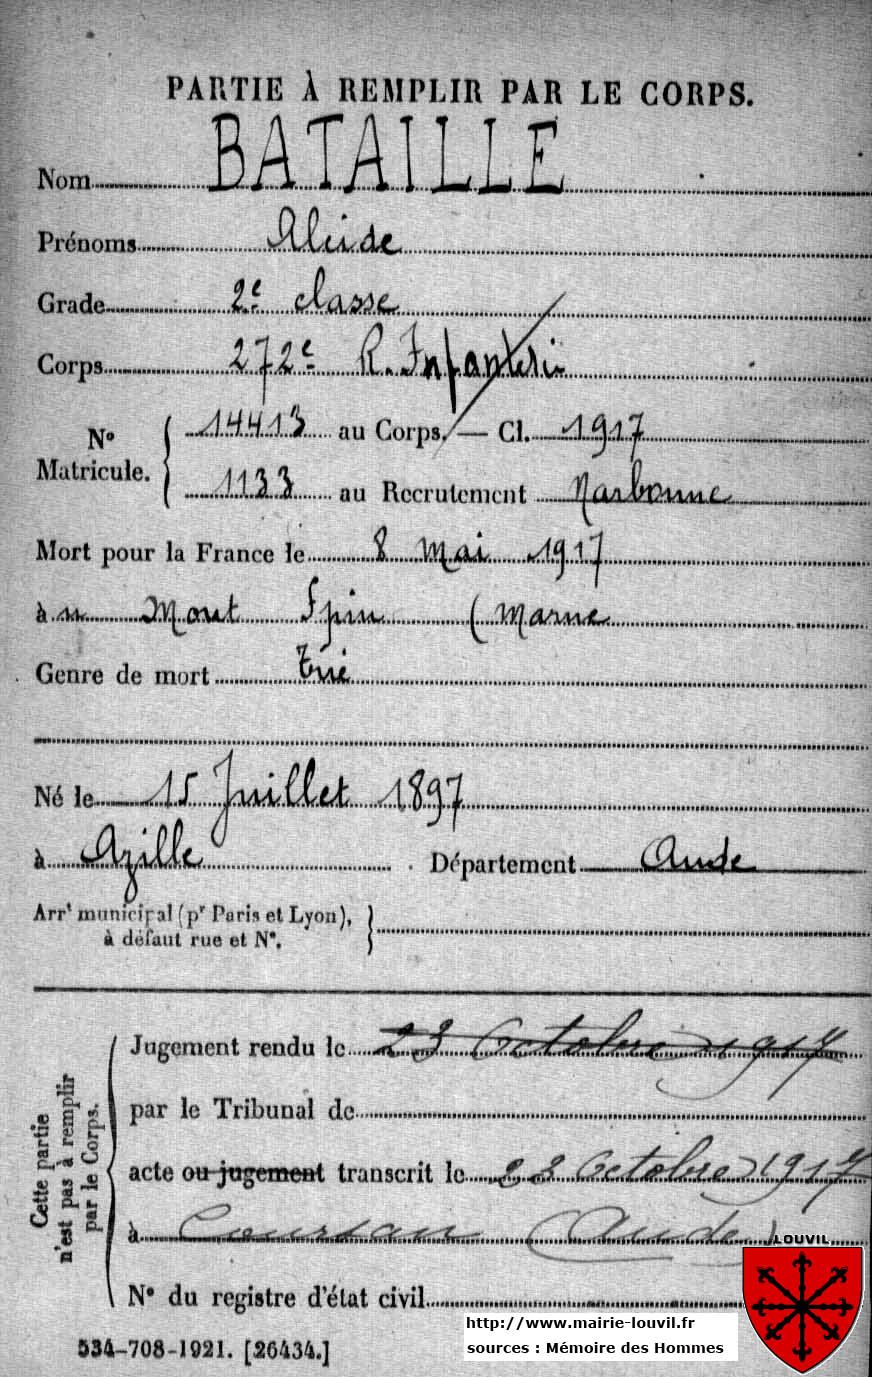 PARTIE À REMPLIR PAR LE CORPS.
Nom BATAILLE
Prénoms Alcide
Grade 2e classe
Corps 272e R. Infanterie
No Matricule. { 14413 au Corps. — Cl. 1917
1133 au Recrutement Narbonne
Mort pour la France le 8 Mai 1917
à u Mont Spin (Marne
Genre de mort Tué
Né le 15 Juillet 1897
à Azille Département Aude
Arrt municipal (pr Paris et Lyon),
à défaut rue et No.
Cette partie n'est pas à remplir par le Corps.
Jugement rendu le 23 Octobre 1917
par le Tribunal de
acte ou jugement transcrit le 23 Octobre 1917
à Coursan (Aude)
No du registre d'état civil
534-708-1921. [26434.]
LOUVIL
http://www.mairie-louvil.fr
sources : Mémoire des Hommes